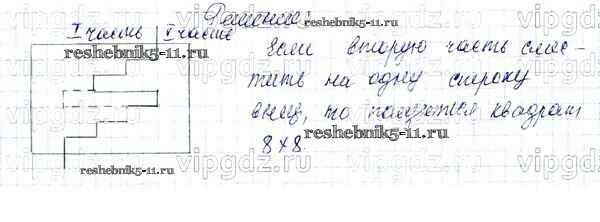 Решение:
I часть II часть
Если вторую часть смес-
тить на одну строку
вниз, то получится квадрат
8х8.
reshebnik5-11.ru
reshebnik5-11.ru
reshebnik5-11.ru
vipgdz.ru
vipgdz.ru
vipgdz.ru
vipgdz.ru
vipgdz.ru
vipgdz.ru